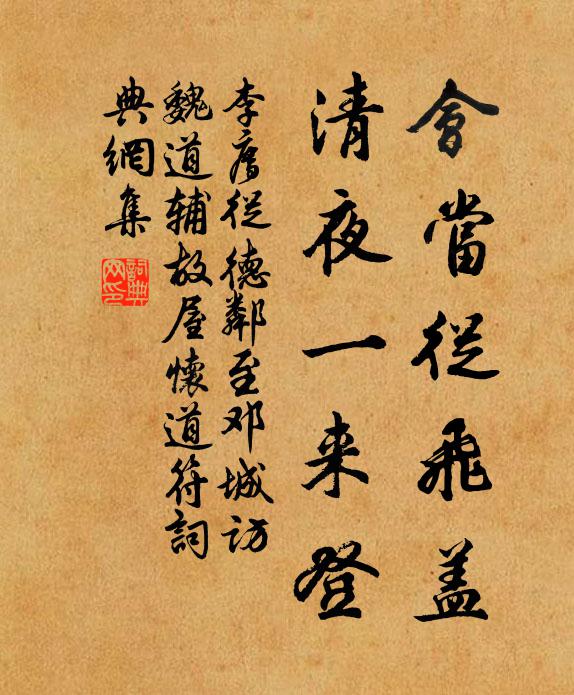 會當從飛盖
清夜一来登
李廌從德鄰至邓城访
魏道辅故屋懷道符詞
典網集
詞典網印